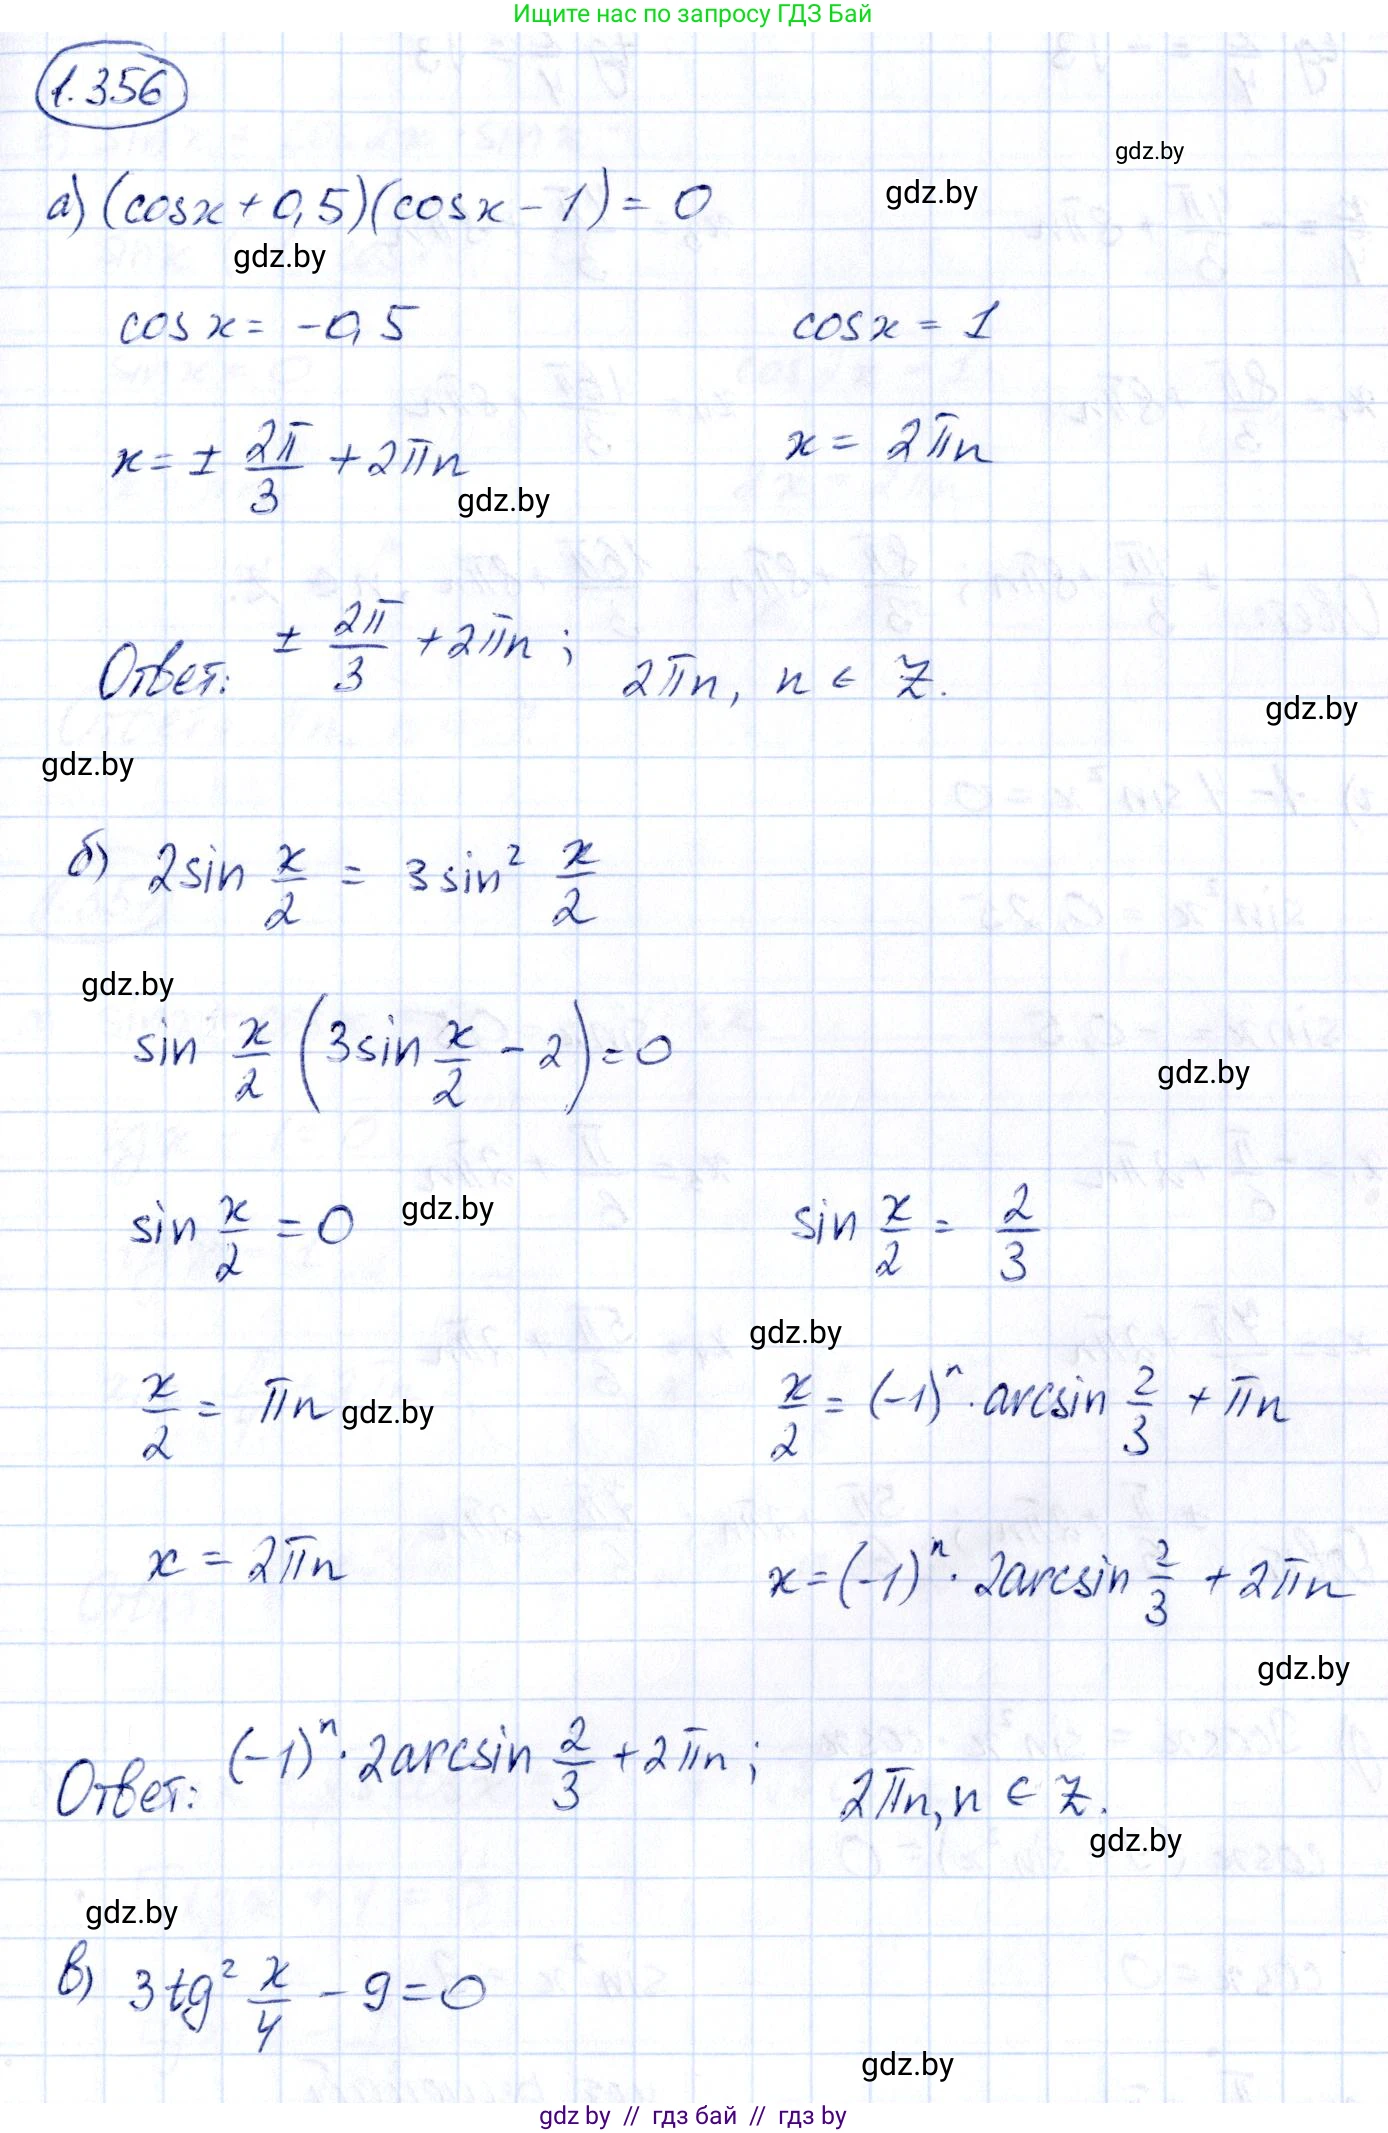 Ищите нас по запросу ГДЗ Бай
1.356
gdz.by
а) (cosx + 0,5)(cosx - 1) = 0
gdz.by
gdz.by
cos x = -0,5 cosx = 1
x = ± 2π/3 + 2πn x = 2πn
gdz.by
Ответ: ± 2π/3 + 2πn; 2πn, n ∈ Z.
gdz.by
gdz.by
б) 2sin x/2 = 3sin² x/2
gdz.by
sin x/2 (3sin x/2 - 2) = 0
gdz.by
sin x/2 = 0 gdz.by sin x/2 = 2/3
gdz.by
x/2 = πn gdz.by x/2 = (-1)ⁿ · arcsin 2/3 + πn
x = 2πn x = (-1)ⁿ · 2arcsin 2/3 + 2πn
gdz.by
Ответ: (-1)ⁿ · 2arcsin 2/3 + 2πn; 2πn, n ∈ Z.
gdz.by
gdz.by
в) 3tg² x/4 - 9 = 0
gdz.by
gdz by // гдз бай // гдз by